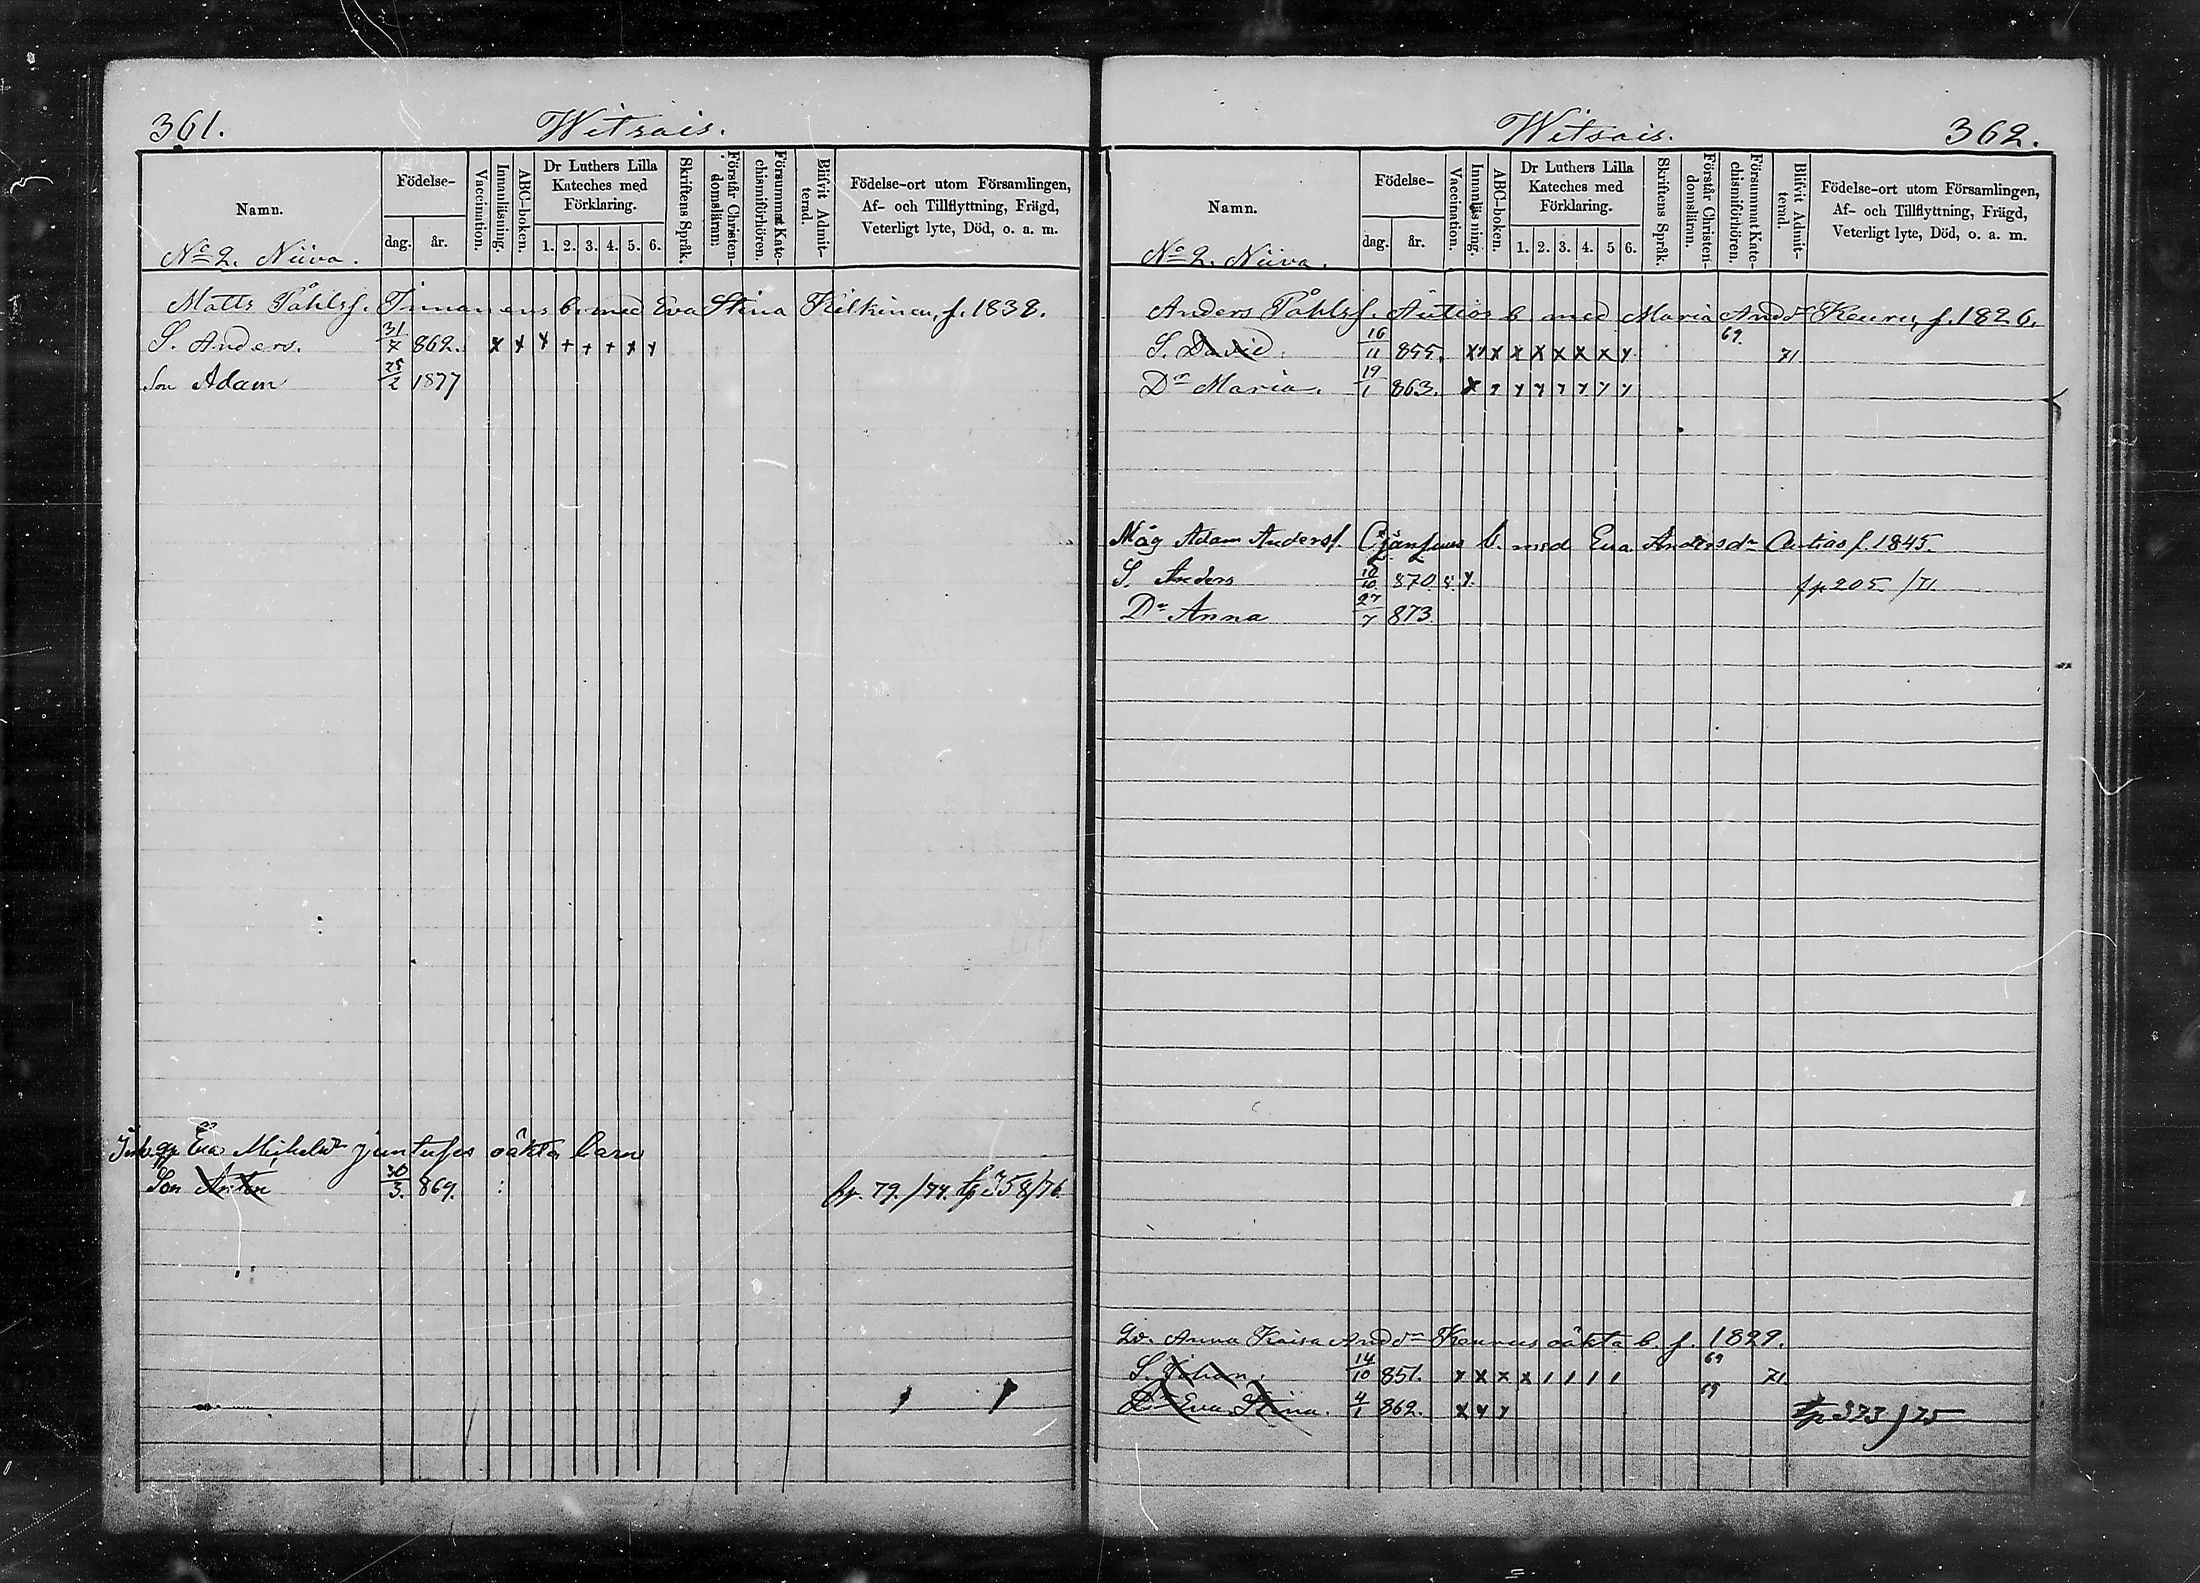 361. Witsais.
Namn.
Födelse-
dag. år.
Vaccination.
Innanläsning.
ABC-boken.
Dr Luthers Lilla Kateches med Förklaring.
1. 2. 3. 4. 5. 6.
Skriftens Språk.
Förstår Christendomsläran.
Försummat Katechismiförhören.
Blifvit Admitterad.
Födelse-ort utom Församlingen,
Af- och Tillflyttning, Frägd,
Veterligt lyte, Död, o. a. m.
No 2. Niiva.
Matts Påhlsf. b. med Eva Stina Kilkinen, f. 1838.
S. Anders. 31/7 862. x x x + + + x x
Son Adam 25/2 1877
Eva Michelsdr oäkta barn
Son Anton 30/3. 869. fp. 79./74. tp 358/76.
Witsais. 362.
Namn.
Födelse-
dag. år.
Vaccination.
Innanläsning.
ABC-boken.
Dr Luthers Lilla Kateches med Förklaring.
1. 2. 3. 4. 5 6.
Skriftens Språk.
Förstår Christendomsläran.
Försummat Katechismiförhören.
Blifvit Admitterad.
Födelse-ort utom Församlingen,
Af- och Tillflyttning, Frägd,
Veterligt lyte, Död, o. a. m.
No 2. Niiva.
Anders Påhlsf. Autios b med Maria Anddr Keuru, f. 1826.
S. David. 16/11 855. x x x x x x x x x 69. 71
Dr Maria. 19/1 863. x x x x x x x x
Måg Adam Andersf. b. med Eva Andersdr Autias f. 1845.
S. Anders 10/10. 870. x x. fp 205 /71
Dr Anna 27/7 873.
Anna Kaisa Anddr Keurus oäkta b. f. 1829.
S. Johan. 14/10 851. x x x x 1 1 1 1 69 71
Dr Eva Stina. 4/1 862. x x x 69 tp 373/75